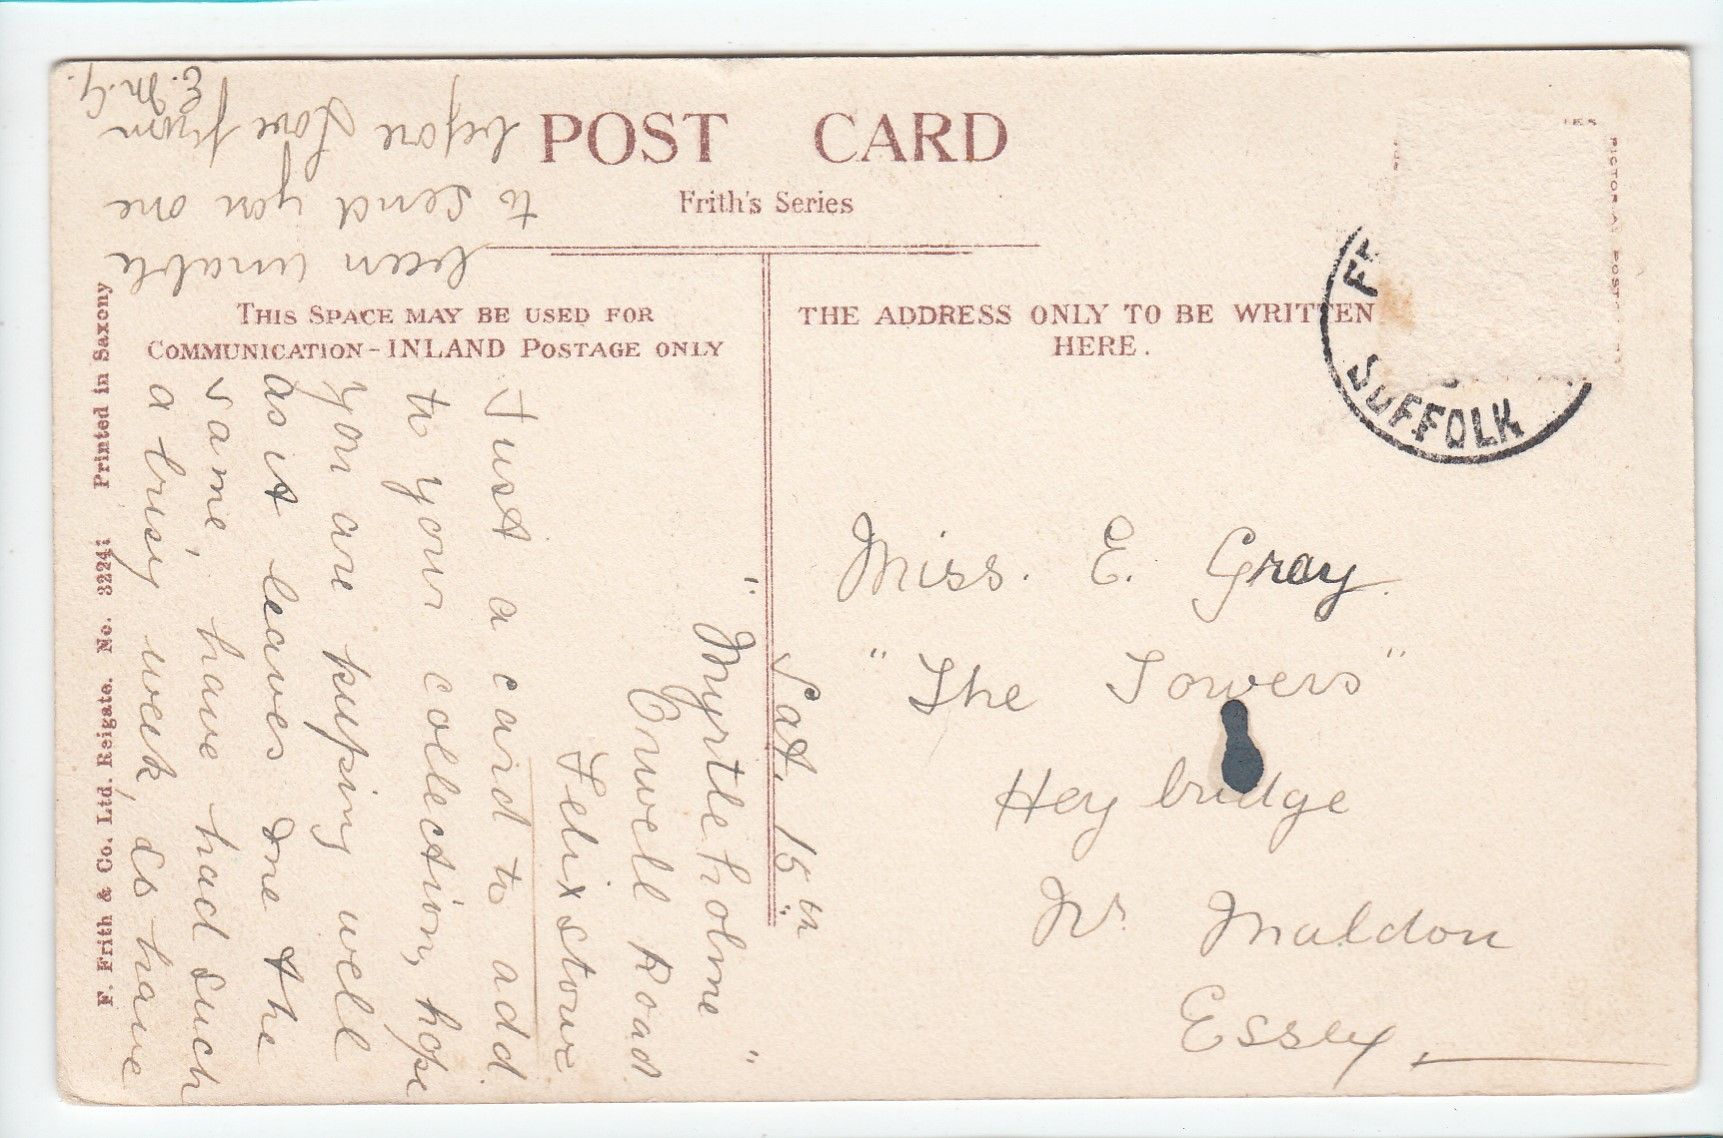 POST CARD
Frith's Series
THIS SPACE MAY BE USED FOR
COMMUNICATION - INLAND POSTAGE ONLY
THE ADDRESS ONLY TO BE WRITTEN
HERE.
SUFFOLK
F. Frith & Co. Ltd. Reigate. No. 3224; Printed in Saxony
Sat. 15th
"Myrtleholme"
Orwell Road
Felixstowe
Just a card to add
to your collection, hope
you are keeping well
as it leaves me the
same, have had such
a busy week, so have
been unable
to send you one
before Love from
E. M. G.
Miss. E. Gray.
"The Towers"
Heybridge
Nr. Maldon
Essex,